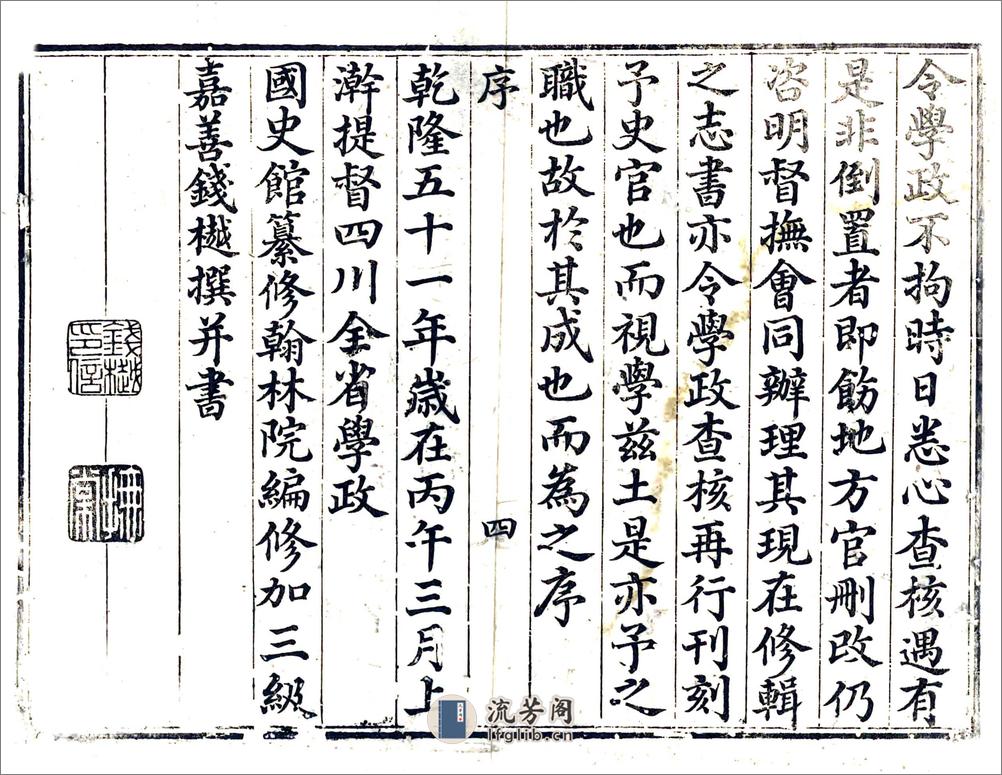 令學政不拘時日悉心查核遇有
是非倒置者即飭地方官刪改仍
咨明督撫會同辦理其現在修輯
之志書亦令學政查核再行刊刻
予史官也而視學兹土是亦予之
職也故於其成也而為之序
序
四
乾隆五十一年歲在丙午三月上
澣提督四川全省學政
國史館纂修翰林院編修加三級
嘉善錢樾撰并書
錢樾
印信
流芳阁
lfglib.cn